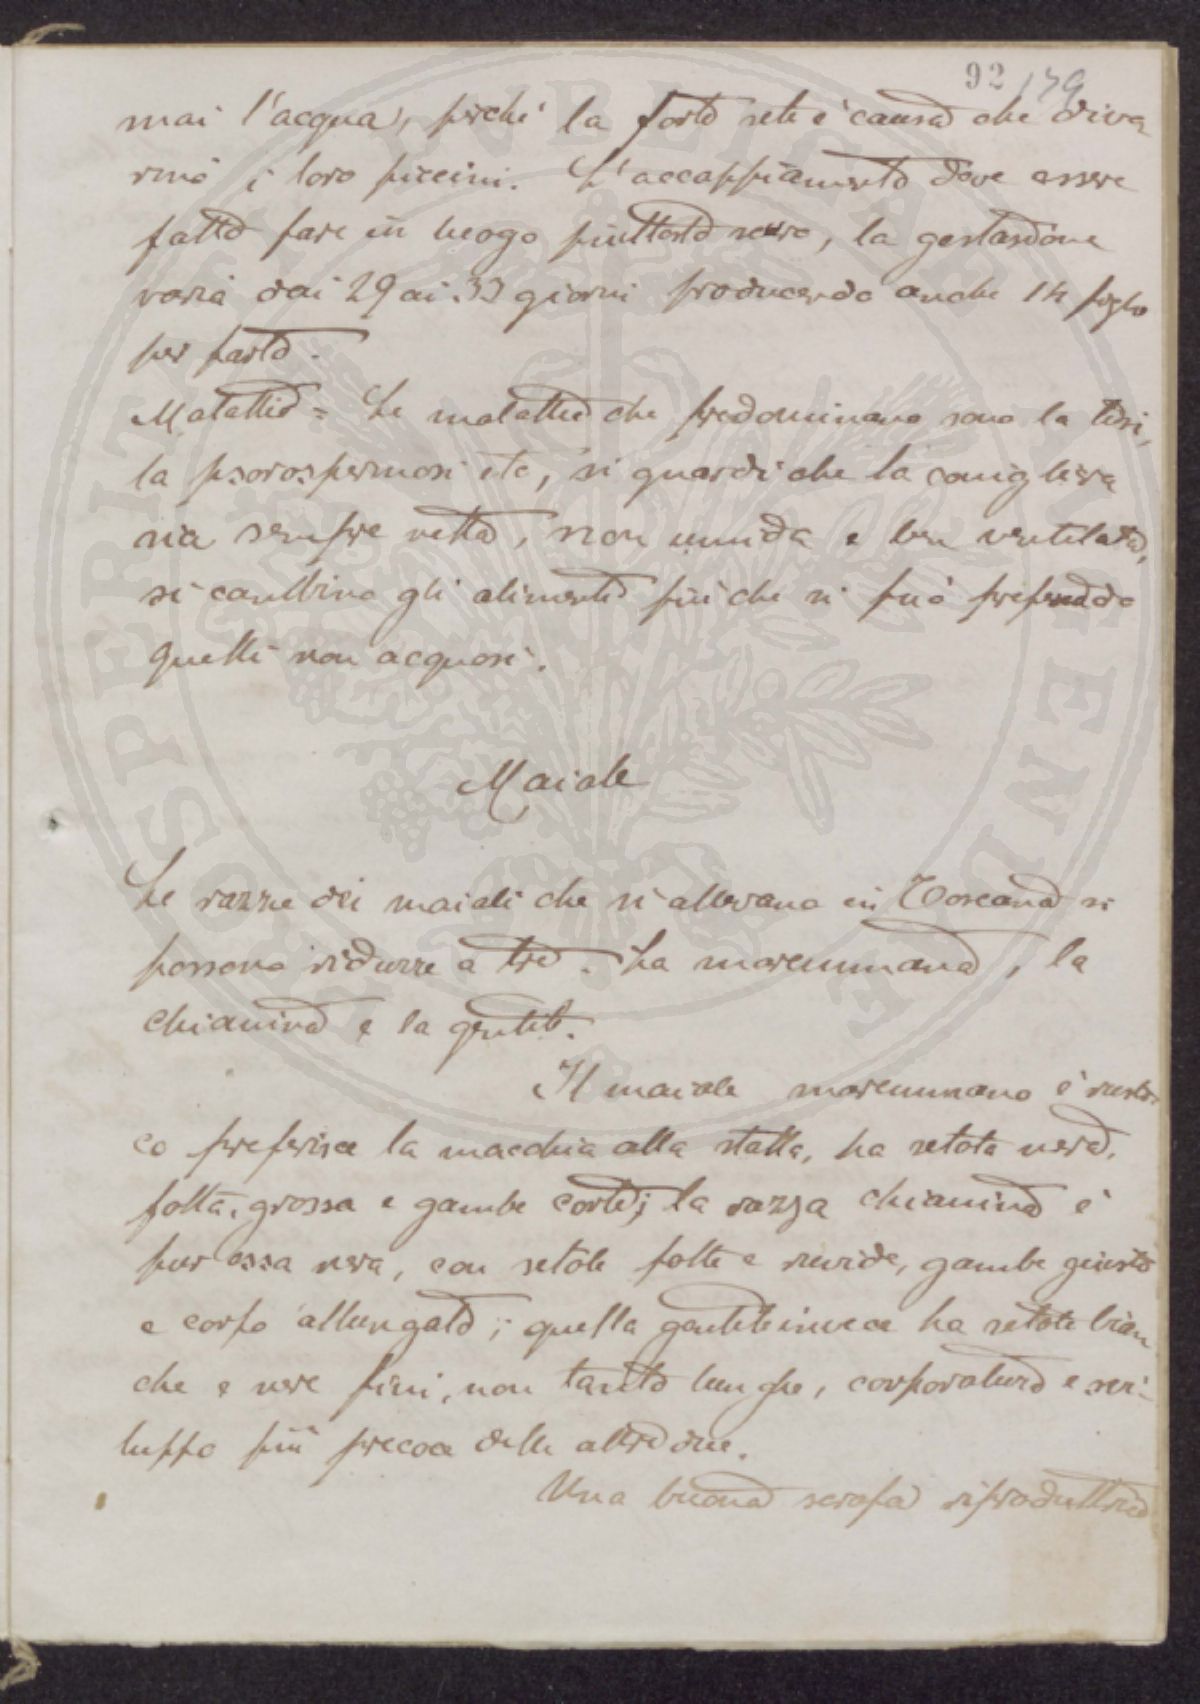 92 179
mai l'acqua, perché la forte sete è causa che divo
rino i loro piccini. L'accoppiamento deve essere
fatto fare in luogo piuttosto scuro, la gestazione
varia dai 29 ai 33 giorni producendo anche 14 figli
per parto.
Malattie = Le malattie che predominano sono la tisi,
la psorospermosi etc, si guardi che la conigliera
sia sempre netta, non umida e ben ventilata,
si cambino gli alimenti più che si può preferendo
quelli non acquosi.
Maiale
Le razze dei maiali che si allevano in Toscana si
possono ridurre a tre. La maremmana, la
chianina e la gentile.
Il maiale maremmano è rusti-
co preferisce la macchia alla stalla, ha setola nera,
folta, grossa e gambe corte; la razza chianina è
pur essa nera, con setole folte e ruvide, gambe giuste
e corpo allungato; quella gentile invece ha setole bian
che e nere fini, non tanto lunghe, corporatura e svi-
luppo più precoce delle altre due.
Una buona scrofa riproduttrice
PUBLICAE
PROSPERITATI AUGENDAE